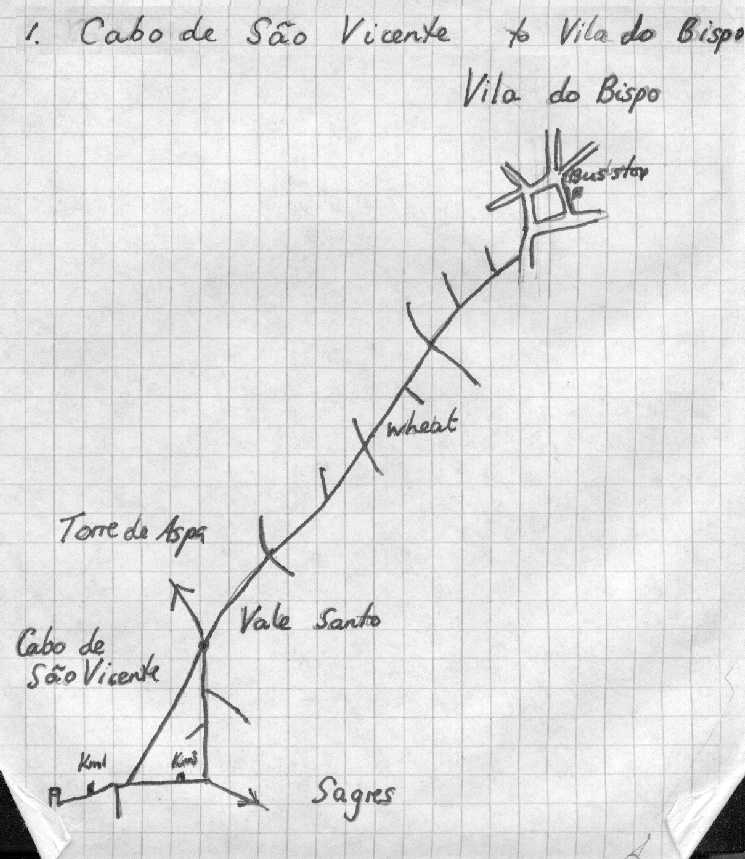 1. Cabo de São Vicente to Vila do Bispo
Vila do Bispo
Bus stop
wheat
Torre de Aspa
Vale Santo
Cabo de
São Vicente
Km1
Km3
Sagres